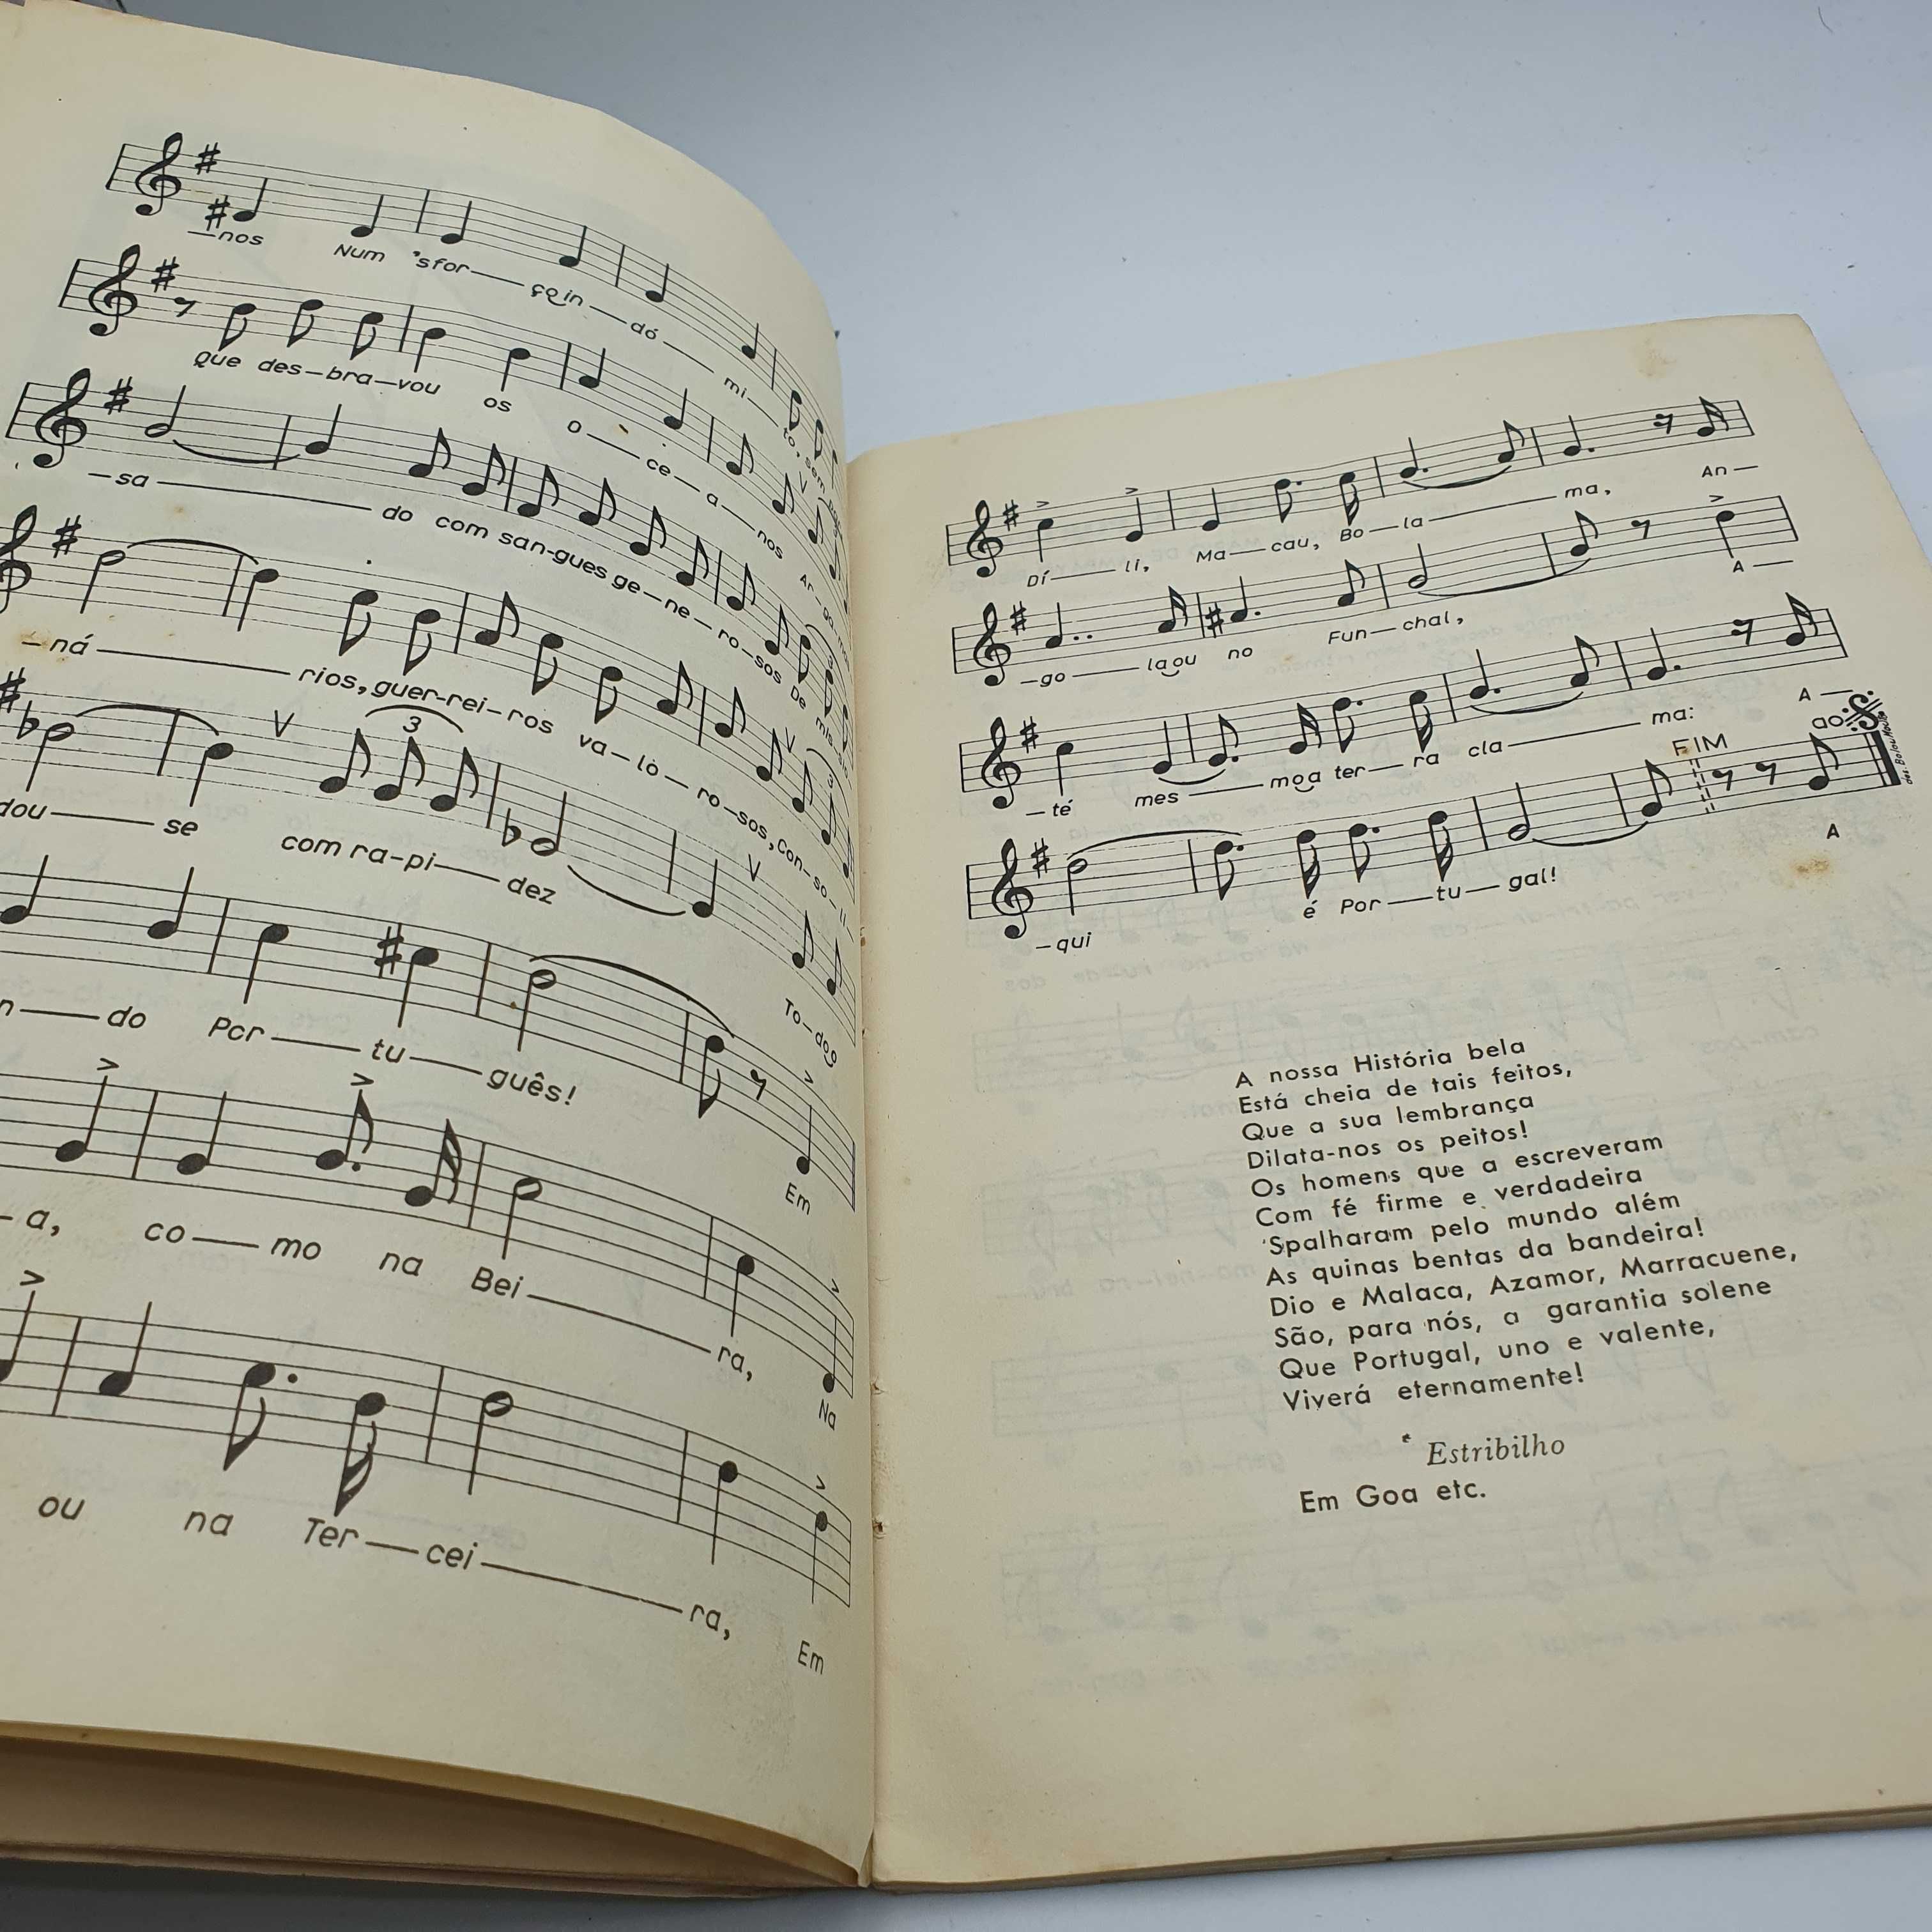 —nos Num 'sfor—ço in—dó—mi—to, sem
Que des—bra—vou os O—ce—a—nos Ar—go—
—sa—do com san-gues ge—ne—ro—sos De mis—
—ná—rios, guer—rei—ros va—lo—ro—sos, Con—so—li—
dou—se com ra-pi—dez To—do o
do Por—tu—guês! Em
—a, co—mo na Bei—ra, Na
ou na Ter—cei—ra, Em
Dí—li, Ma—cau, Bo—la—ma, An—
—go—la ou no Fun—chal, A—
—té mes—mo a ter—ra cla—ma: A—
FIM ao
—qui é Por—tu—gal! A
A nossa História bela
Está cheia de tais feitos,
Que a sua lembrança
Dilata-nos os peitos!
Os homens que a escreveram
Com fé firme e verdadeira
'Spalharam pelo mundo além
As quinas bentas da bandeira!
Dio e Malaca, Azamor, Marracuene,
São, para nós, a garantia solene
Que Portugal, uno e valente,
Viverá eternamente!
Estribilho
Em Goa etc.